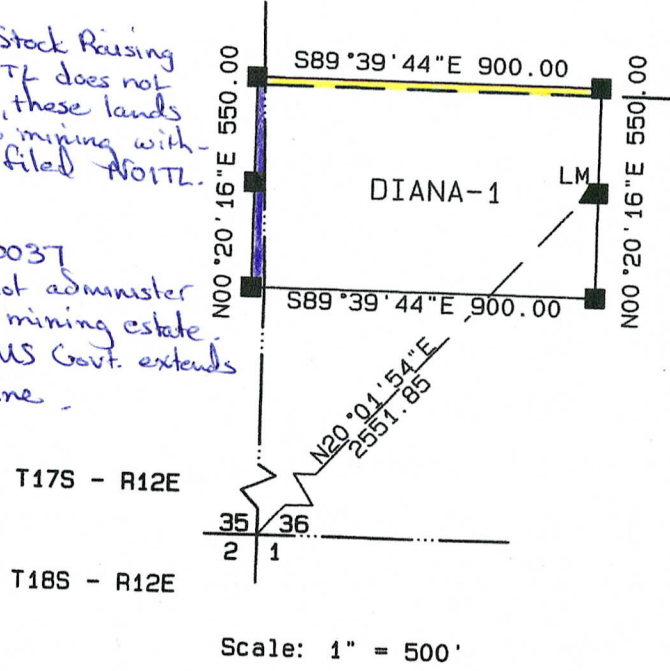 Stock Raising
does not
these lands
mining with-
filed NOITL.
0037
administer
mining estate.
US Govt. extends
S89°39'44"E 900.00
N00°20'16"E 550.00
DIANA-1
LM
N00°20'16"E 550.00
S89°39'44"E 900.00
N20°01'54"E
2551.85
T17S - R12E
35 36
2 1
T18S - R12E
Scale: 1" = 500'